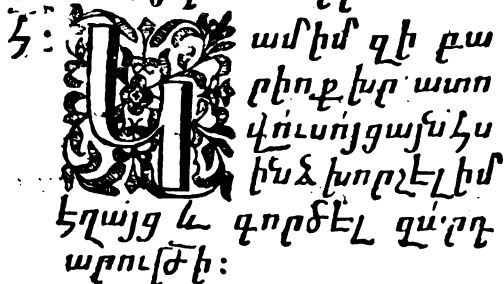 Հ: Կամիմ զի բա
րիոք խրատո
վուսոյցայն հս
ինձ խորհել իմ
եղայց և գործել զարդ
արութի: